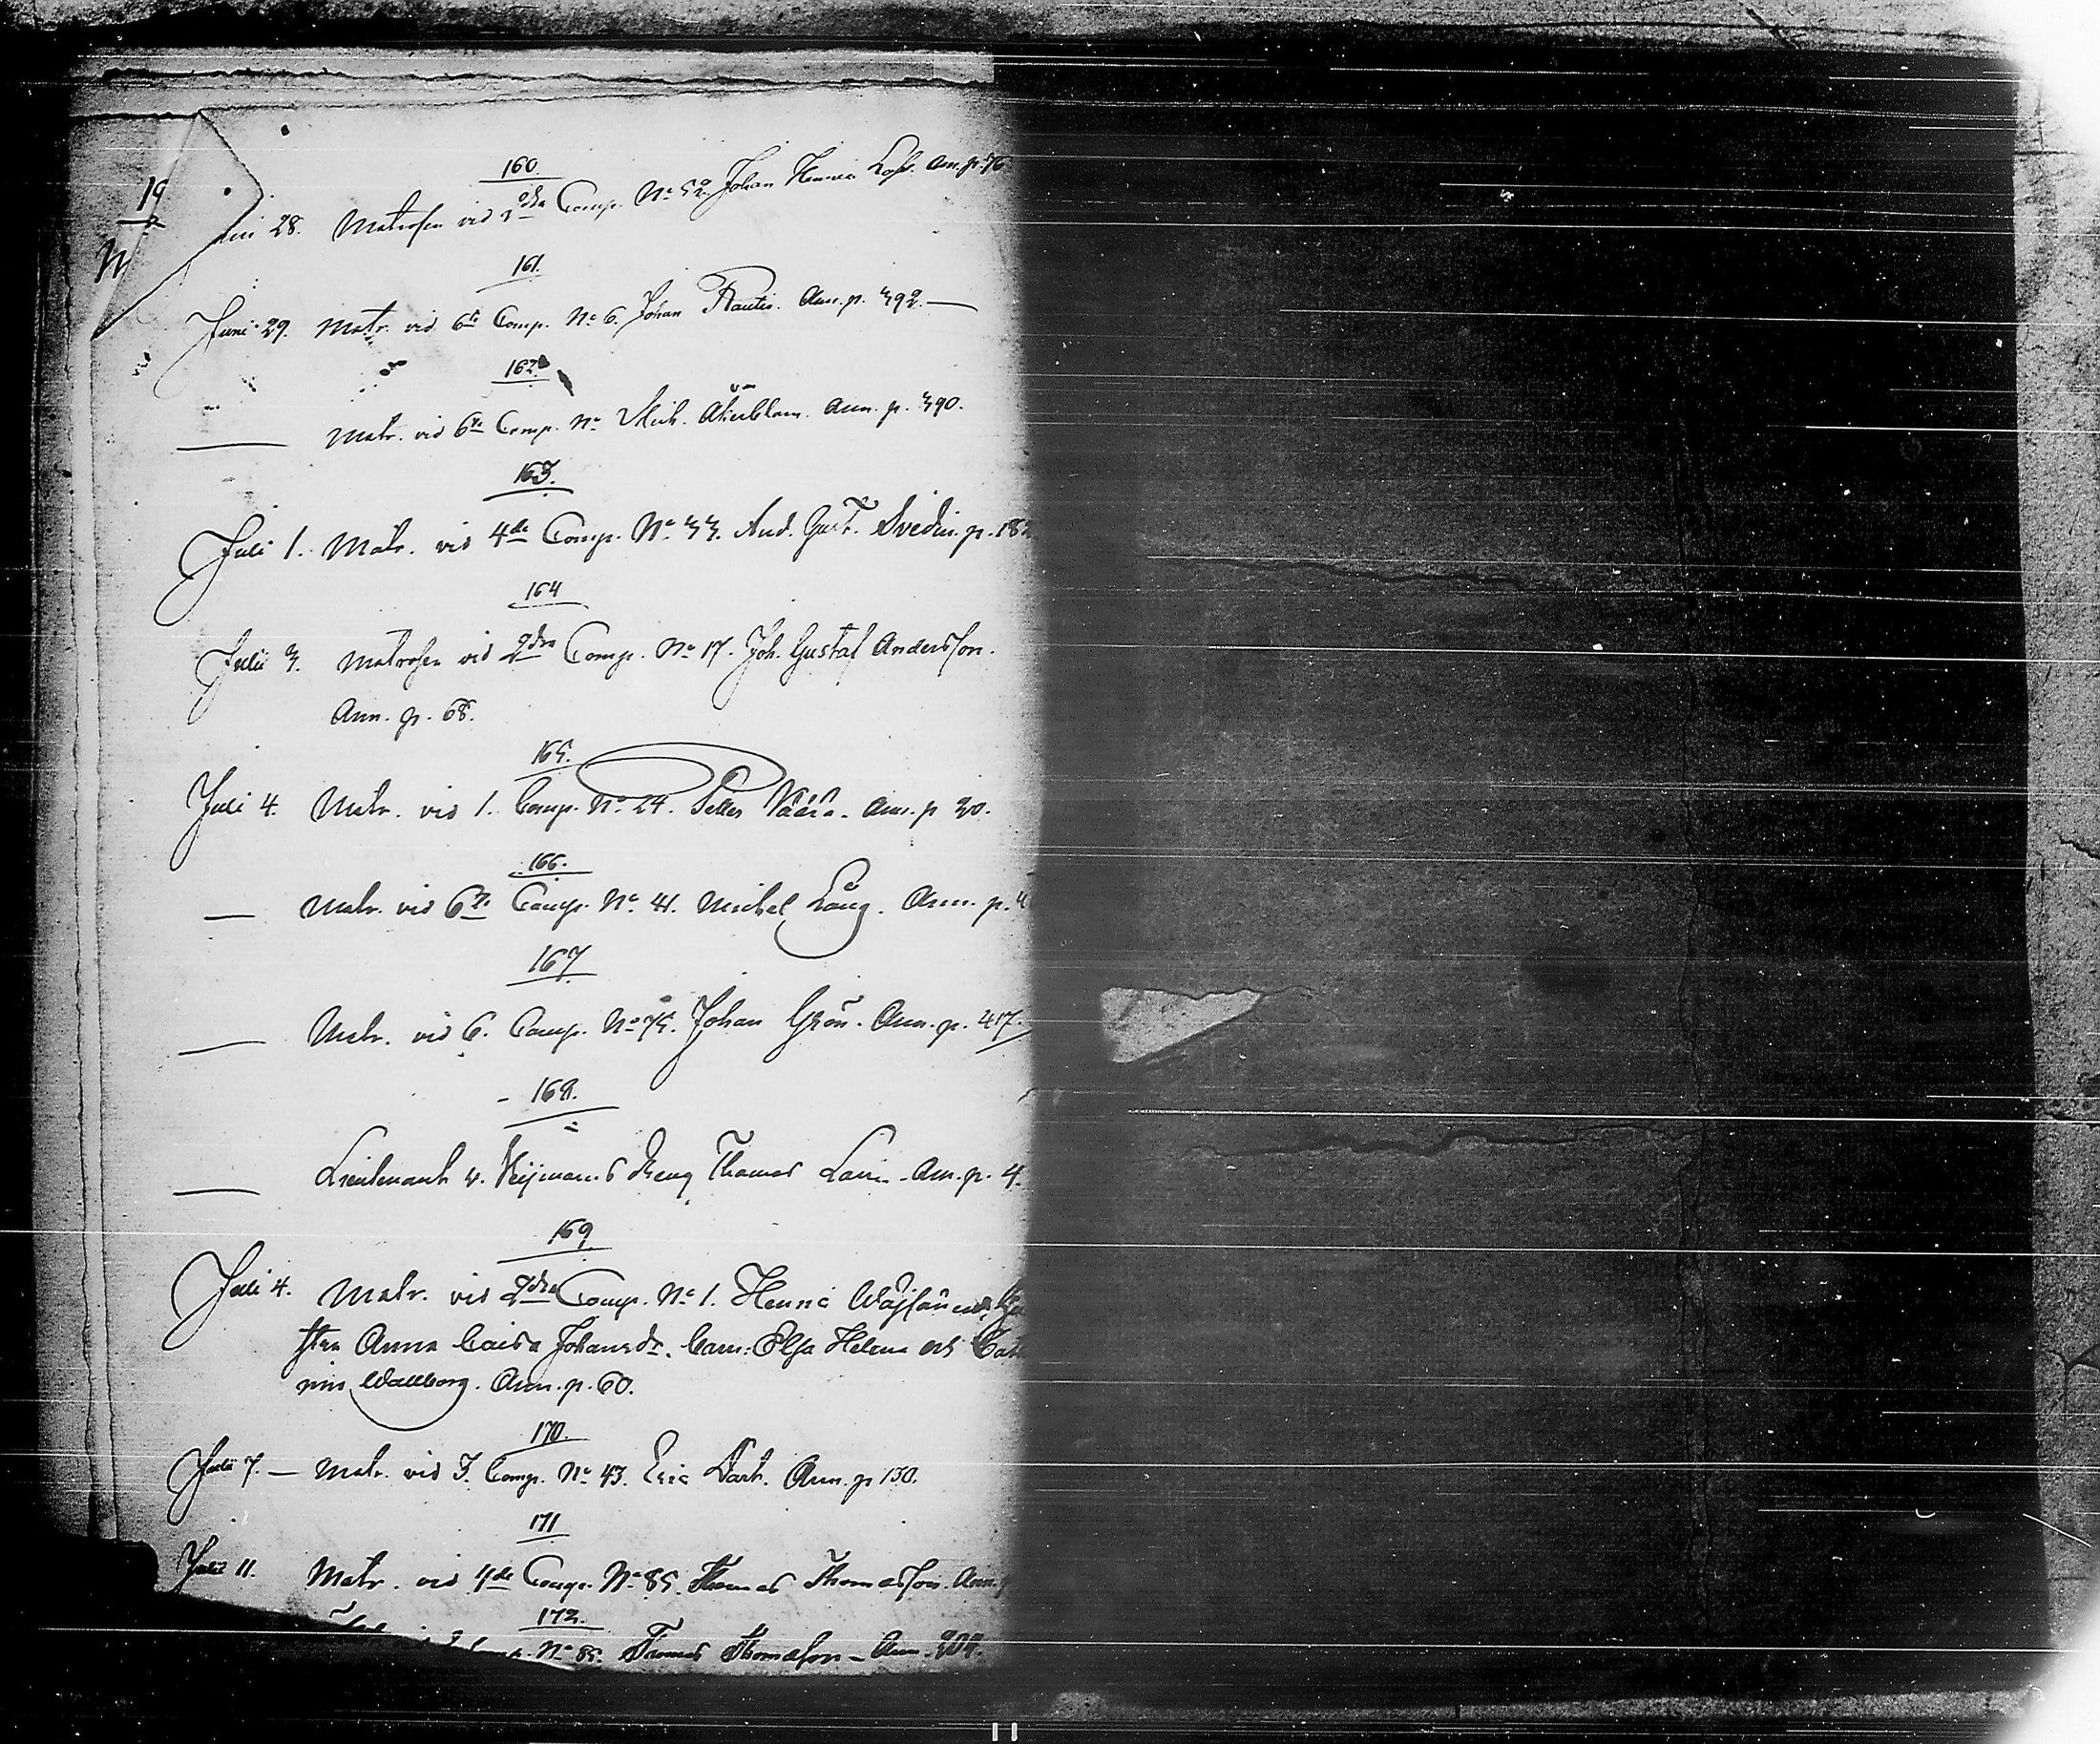 160.
28. Matrosen vid 2dra Comp. No 52. Johan Henric Ann. p. 76
161.
Juni 29. Matr. vid 6te Comp. No 6. Johan Rautio. Ann. p. 392.
162.
Matr. vid 6te Comp. No Mich. Åkerblom. Ann. p. 390.
163.
Juli 1. Matr. vid 4de Comp. No 33. And. Gust. Svedin. p. 182
164
Julii 3. Matrosen vid 2dra Comp. No 17. Joh. Gustaf Andersson.
Ann. p. 68.
165.
Juli 4. Matr. vid 1. Comp. No 24. Petter Väärä. Ann. p 30.
166.
— Matr. vid 6te Comp. No 41. Michel Lång. Ann. p. 4
167
— Matr. vid 6. Comp. No 75. Johan Grön. Ann. p. 417.
168.
— Lieutenant v. dreng Thomas Ann. p. 4
169
Juli 4. Matr. vid 2dra Comp. No 1. Henric
Anna Caisa Johansdr. Barn: Elsa Helena och
Wallborg. Ann. p. 60.
170.
Julii 7. — Matr. vid 3. Comp. No 43. Eric Dark. Ann. p 130.
171
Julii 11. Matr. vid 4de Comp. No 85. Thomas Thomasson. Ann. p
172.
No 85. Thomas Thomasson — Ann. 209.